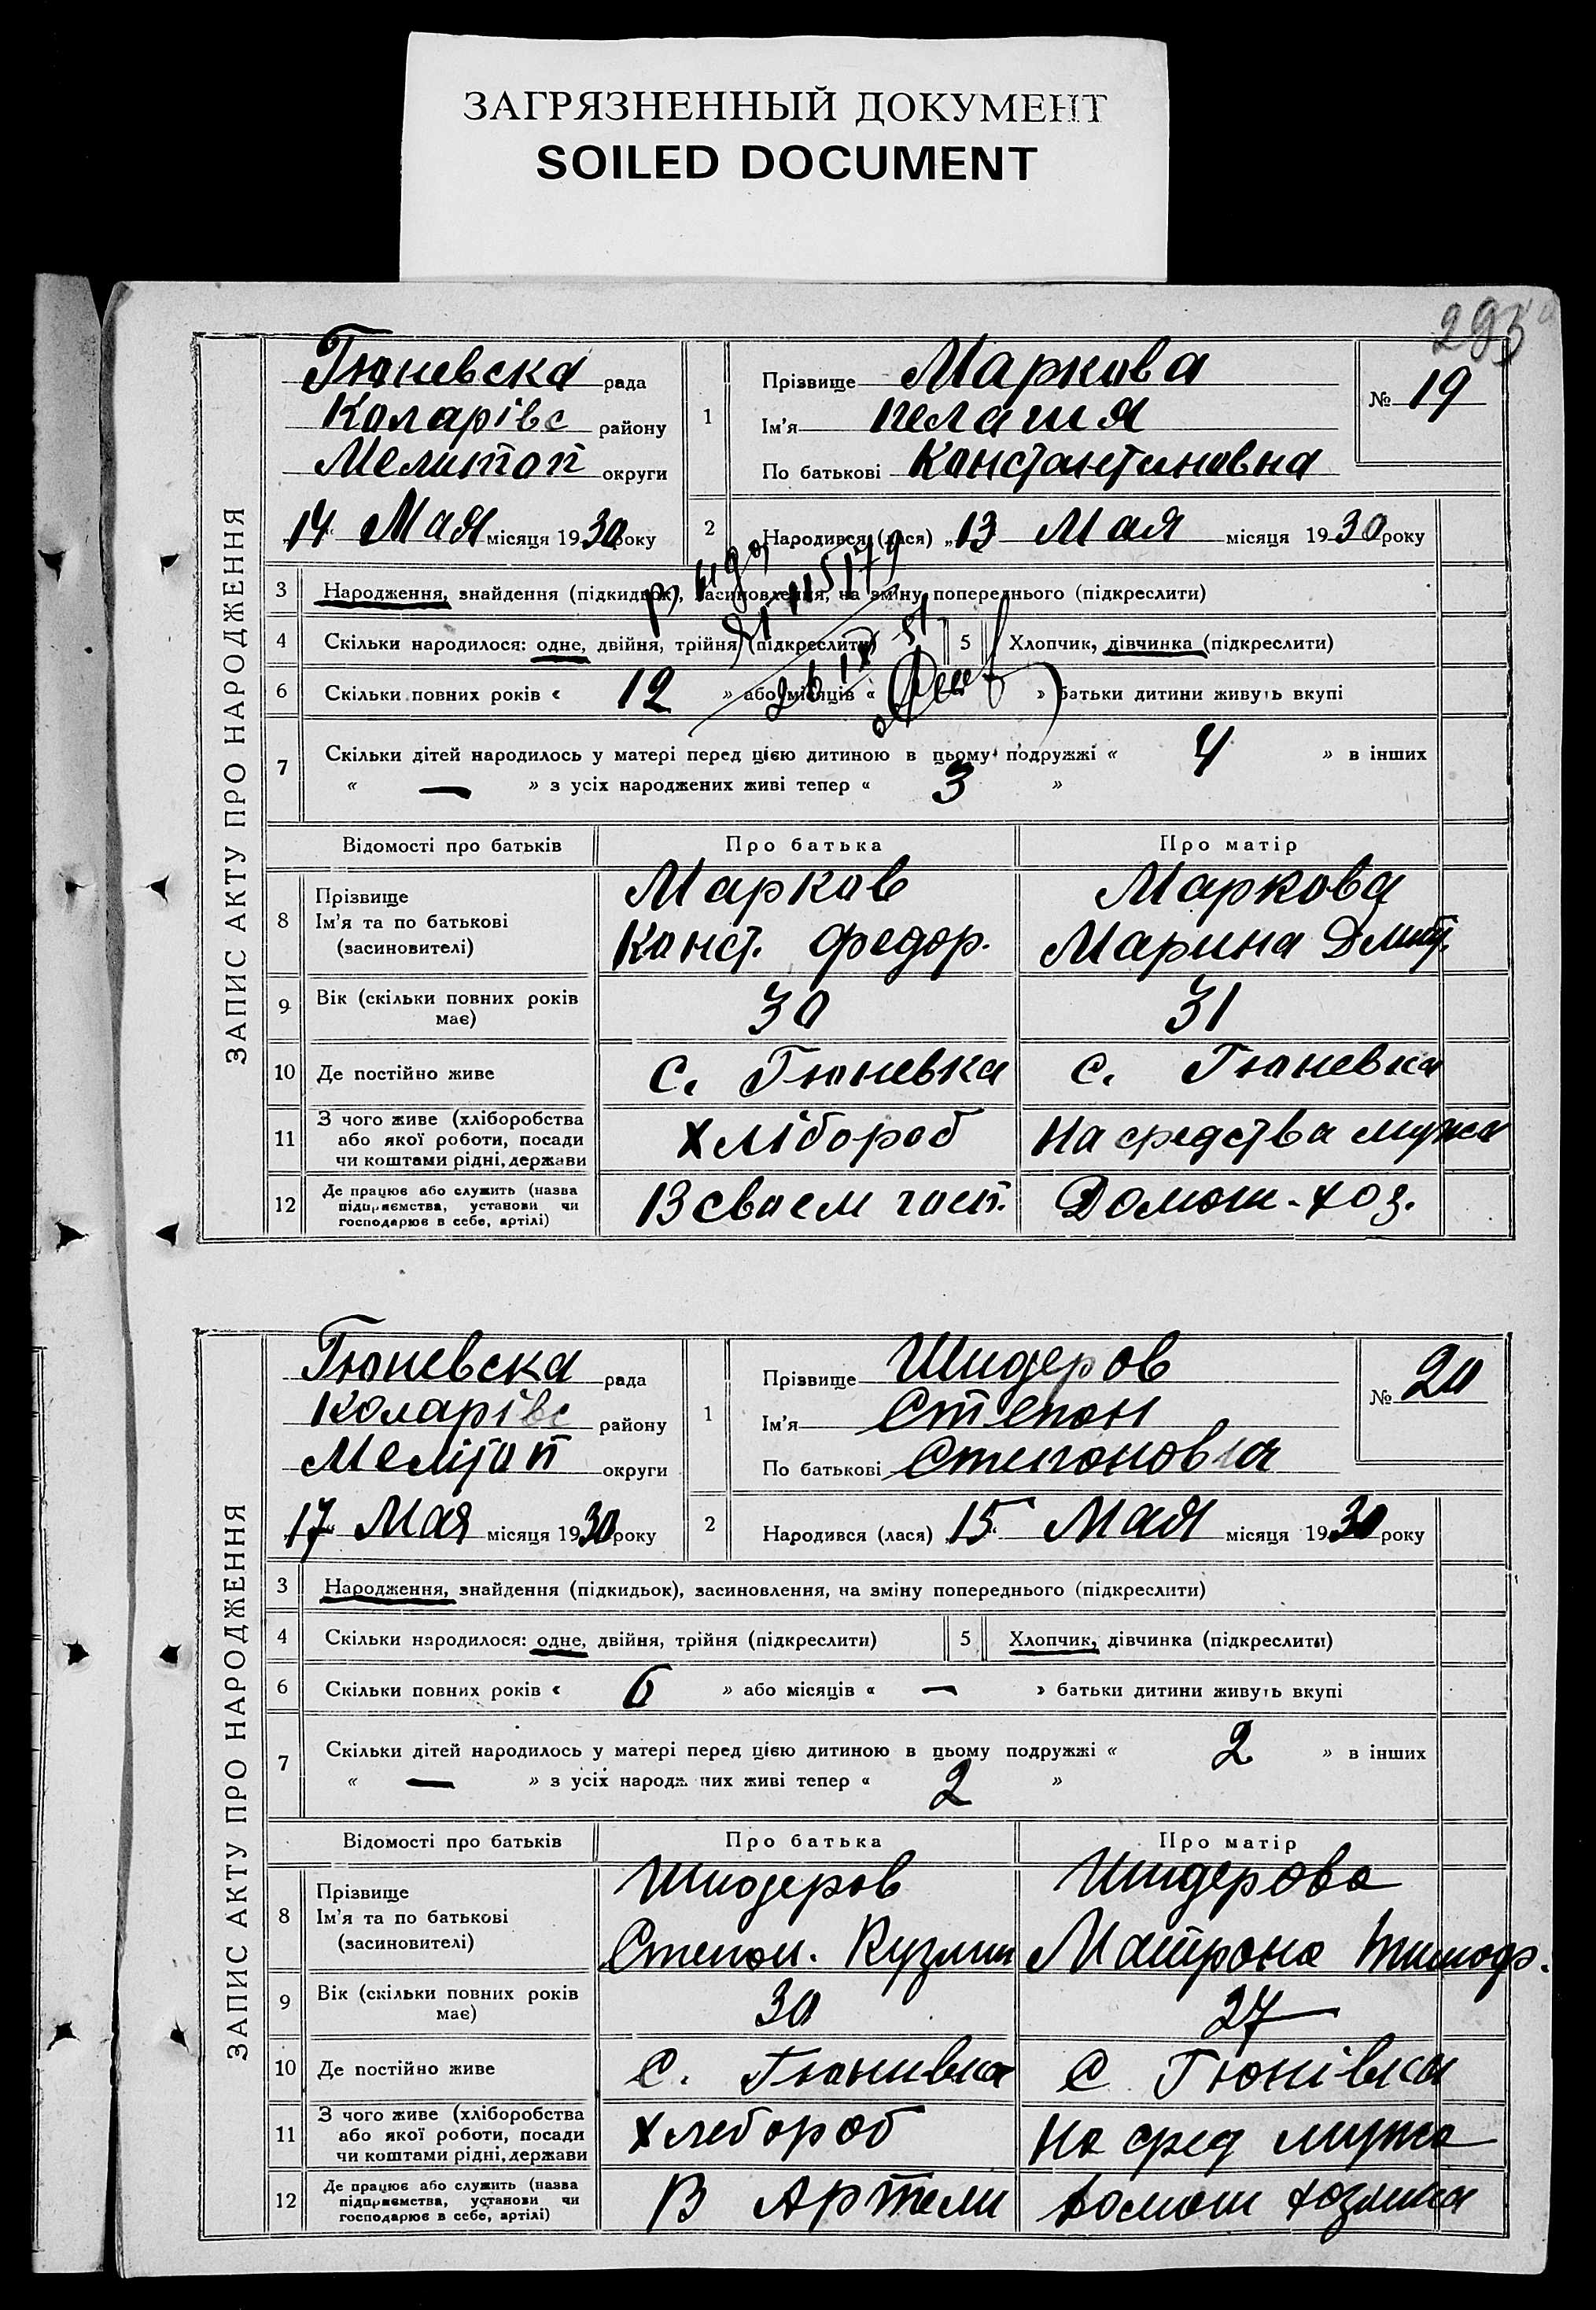 ЗАГРЯЗНЕННЫЙ ДОКУМЕНТ
SOILED DOCUMENT
293
ЗАПИС АКТУ ПРО НАРОДЖЕННЯ
Гюневска рада
Коларівс району
Мелитоп округи
„14" Мая місяця 1930 року
1
Прізвище Маркова
Ім'я Пелагия
По батькові Константиновна
№ 19
2 Народився (лася) „13 Мая місяця 1930 року
3 Народження, знайдення (підкидьок), засиновлення, на зміну попереднього (підкреслити)
4 Скільки народилося: одне, двійня, трійня (підкреслити) 5 Хлопчик, дівчинка (підкреслити)
6 Скільки повних років « 12 » або місяців « » батьки дитини живуть вкупі
7 Скільки дітей народилось у матері перед цією дитиною в цьому подружжі « 4 » в інших
« — » з усіх народжених живі тепер « 3 »
Відомості про батьків Про батька Про матір
8 Прізвище Марков Маркова
Ім'я та по батькові Конст. Федор. Марина Дмитр.
(засиновителі)
9 Вік (скільки повних років має) 30 31
10 Де постійно живе с. Гюневка с. Гюневка
11 З чого живе (хліборобства або якої роботи, посади чи коштами рідні, держави Хлібороб На средства мужа
12 Де працює або служить (назва підприємства, установи чи господарює в себе, артілі) В своем госп. Домош-хоз.
ЗАПИС АКТУ ПРО НАРОДЖЕННЯ
Гюневска рада
Коларівс району
Мелітоп округи
„17" Мая місяця 1930 року
1
Прізвище Шидеров
Ім'я Степон
По батькові Степонов
№ 20
2 Народився (лася) „15 Мая місяця 1930 року
3 Народження, знайдення (підкидьок), засиновлення, на зміну попереднього (підкреслити)
4 Скільки народилося: одне, двійня, трійня (підкреслити) 5 Хлопчик, дівчинка (підкреслити)
6 Скільки повних років « 6 » або місяців « — » батьки дитини живуть вкупі
7 Скільки дітей народилось у матері перед цією дитиною в цьому подружжі « 2 » в інших
« — » з усіх народжених живі тепер « 2 »
Відомості про батьків Про батька Про матір
8 Прізвище Шидеров Шидерова
Ім'я та по батькові Степон. Кузмич Матрона Тимофр.
(засиновителі)
9 Вік (скільки повних років має) 30 27
10 Де постійно живе с. Гюнивка с Гюнівка
11 З чого живе (хліборобства або якої роботи, посади чи коштами рідні, держави Хлебороб На сред мужа
12 Де працює або служить (назва підприємства, установи чи господарює в себе, артілі) В Артели домош хозяйка